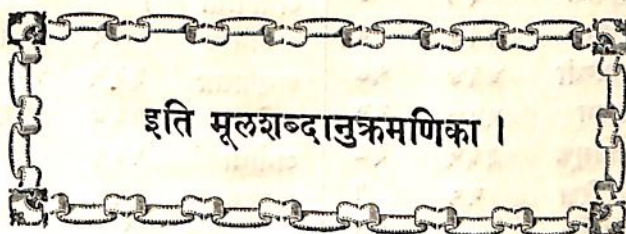 इति मूलशब्दानुक्रमणिका ।